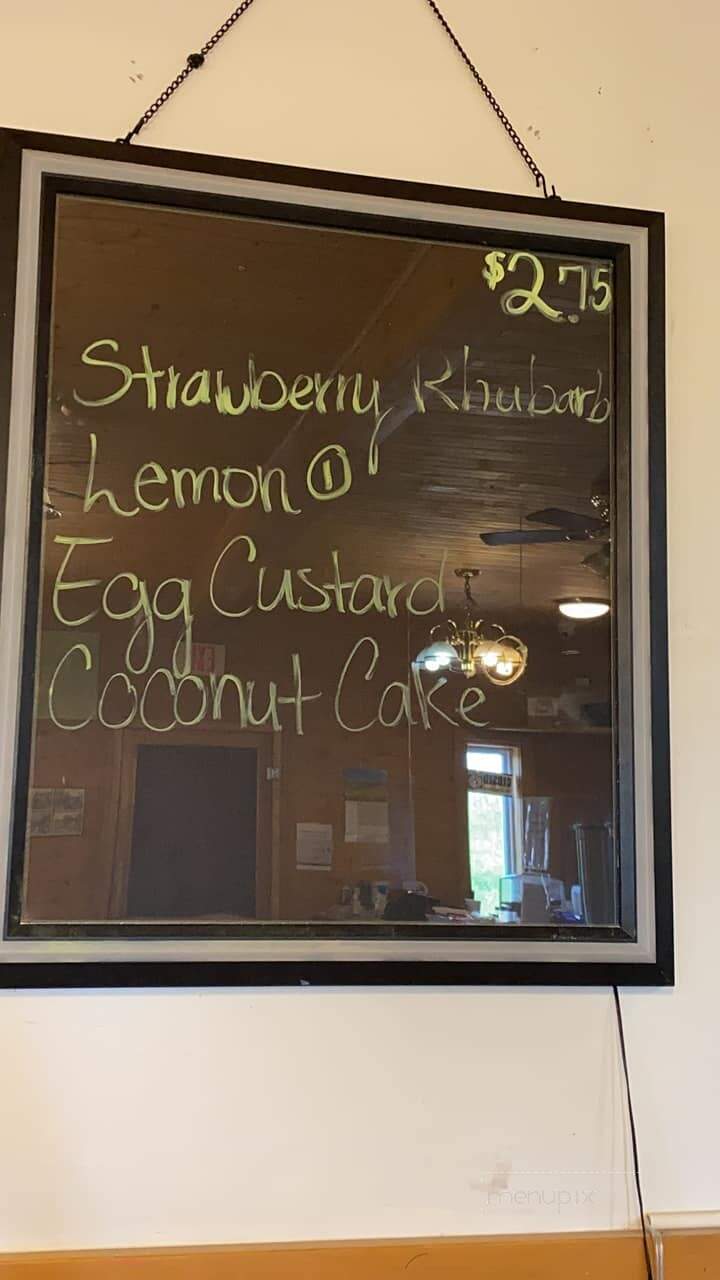 $2.75
Strawberry Rhubarb
Lemon ①
Egg Custard
Coconut Cake
menupix